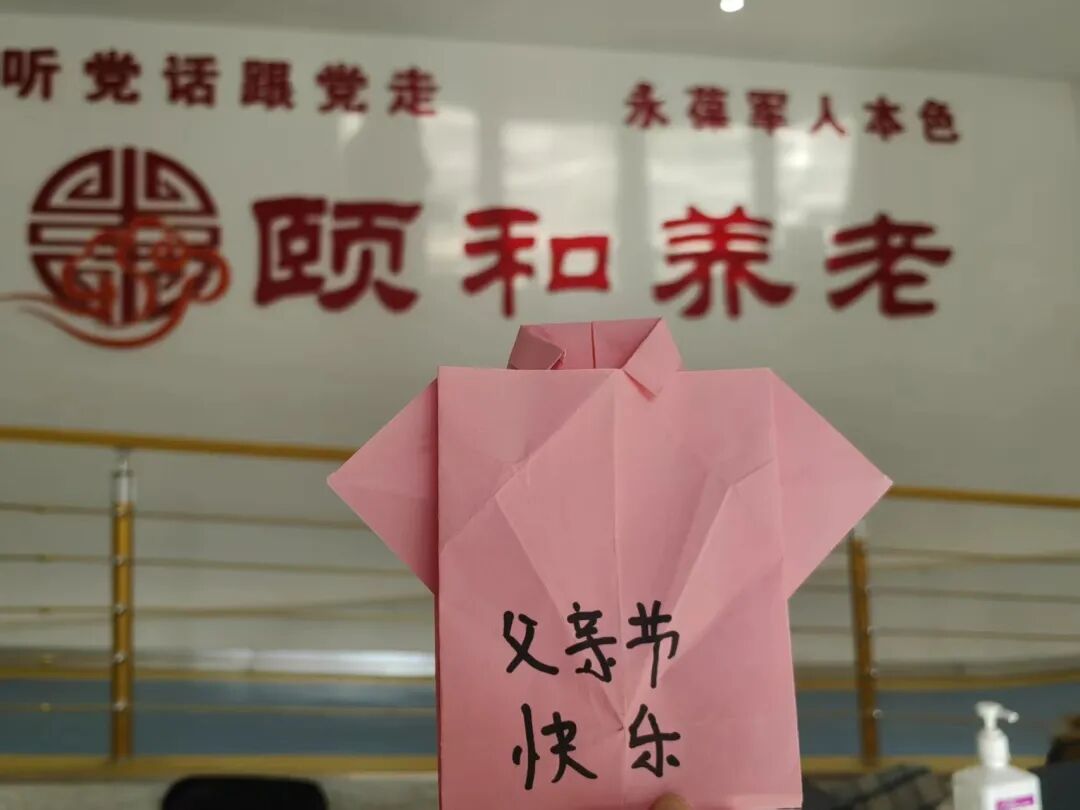 听党话跟党走
永葆军人本色
颐和养老
父亲节
快乐